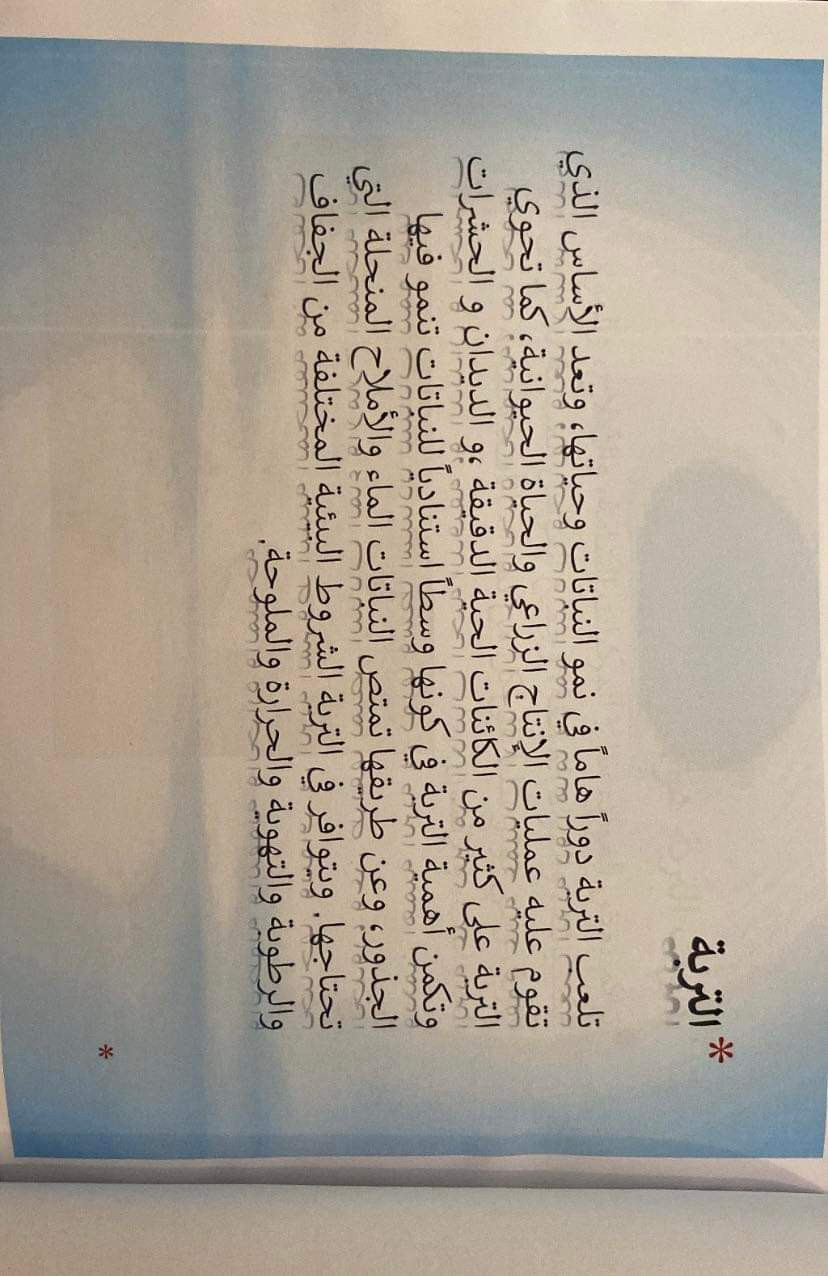 * التربة
تلعب التربة دوراً هاماً في نمو النباتات وحياتها، وتعد الأساس الذي
تقوم عليه عمليات الإنتاج الزراعي والحياة الحيوانية، كما تحوي
التربة على كثير من الكائنات الحية الدقيقة ،و الديدان و الحشرات
وتكمن أهمية التربة في كونها وسطاً استنادياً للنباتات تنمو فيها
الجذور، وعن طريقها تمتص النباتات الماء والأملاح المنحلة التي
تحتاجها. ويتوافر في التربة الشروط البيئية المختلفة من الجفاف
والرطوبة والتهوية والحرارة والملوحة.
*